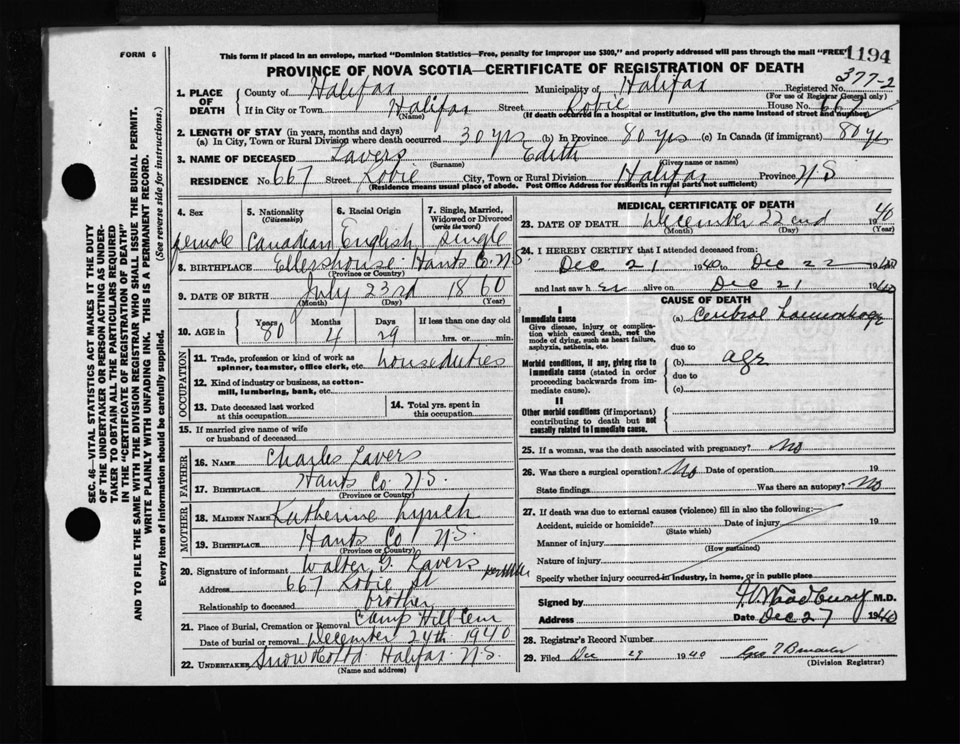 FORM 6
This form if placed in an envelope, marked "Dominion Statistics—Free, penalty for improper use $300," and properly addressed will pass through the mail "FREE"
1194
PROVINCE OF NOVA SCOTIA—CERTIFICATE OF REGISTRATION OF DEATH
377-2
1. PLACE OF DEATH
County of Halifax Municipality of Halifax Registered No.
(For use of Registrar General only)
If in City or Town Halifax Street Robie House No. 667
(Name) (If death occurred in a hospital or institution, give the name instead of street and number)
2. LENGTH OF STAY (in years, months and days)
(a) In City, Town or Rural Division where death occurred 30 yrs (b) In Province 80 yrs (c) In Canada (if immigrant) 80 yrs
3. NAME OF DECEASED Lavers Edith
(Surname) (Given name or names)
RESIDENCE No. 667 Street Robie City, Town or Rural Division Halifax Province N.S.
(Residence means usual place of abode. Post Office Address for residents in rural parts not sufficient)
4. Sex female
5. Nationality (Citizenship) Canadian
6. Racial Origin English
7. Single, Married, Widowed or Divorced (write the word) Single
8. BIRTHPLACE Ellershouse Hants Co. N.S.
(Province or Country)
9. DATE OF BIRTH July 23rd 1860
(Month) (Day) (Year)
10. AGE in Years 80 Months 4 Days 29 If less than one day old
hrs. or min.
OCCUPATION
11. Trade, profession or kind of work as spinner, teamster, office clerk, etc. house duties
12. Kind of industry or business, as cotton-mill, lumbering, bank, etc.
13. Date deceased last worked at this occupation
14. Total yrs. spent in this occupation
15. If married give name of wife or husband of deceased
FATHER
16. NAME Charles Lavers
17. BIRTHPLACE Hants Co N.S.
(Province or Country)
MOTHER
18. MAIDEN NAME Katherine Lynch
19. BIRTHPLACE Hants Co N.S.
(Province or Country)
20. Signature of informant Walter G. Lavers
Address 667 Robie St
Relationship to deceased brother
21. Place of Burial, Cremation or Removal Camp Hill Cem
Date of burial or removal December 24th 1940
22. UNDERTAKER Snow Halifax N.S.
(Name and address)
MEDICAL CERTIFICATE OF DEATH
23. DATE OF DEATH December 22nd 1940
(Month) (Day)
24. I HEREBY CERTIFY that I attended deceased from:
Dec 21 1940 to Dec 22 1940
and last saw her alive on Dec 21 1940
CAUSE OF DEATH
Immediate cause
Give disease, injury or complication which caused death, not the mode of dying, such as heart failure, asphyxia, asthenia, etc.
(a) Cerebral Haemorrhage
due to
Morbid conditions, if any, giving rise to immediate cause (stated in order proceeding backwards from immediate cause).
(b) age
due to
(c)
II
Other morbid conditions (if important) contributing to death but not causally related to immediate cause.
25. If a woman, was the death associated with pregnancy? No
26. Was there a surgical operation? No Date of operation 19
State findings Was there an autopsy? No
27. If death was due to external causes (violence) fill in also the following:
Accident, suicide or homicide? Date of injury 19
(State which)
Manner of injury
(How sustained)
Nature of injury
Specify whether injury occurred in industry, in home, or in public place
Signed by M.D.
Address Date Dec 27 1940
28. Registrar's Record Number
29. Filed Dec 29 1940
(Division Registrar)
SEC. 46—VITAL STATISTICS ACT MAKES IT THE DUTY
OF THE UNDERTAKER OR PERSON ACTING AS UNDER-
TAKER TO OBTAIN ALL THE PARTICULARS REQUIRED
IN THE "CERTIFICATE OF REGISTRATION OF DEATH"
AND TO FILE THE SAME WITH THE DIVISION REGISTRAR WHO SHALL ISSUE THE BURIAL PERMIT.
WRITE PLAINLY WITH UNFADING INK. THIS IS A PERMANENT RECORD.
Every item of information should be carefully supplied. (See reverse side for instructions.)